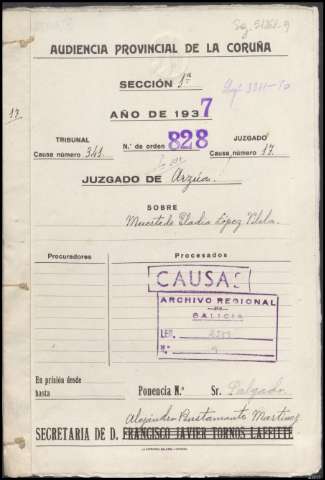 AUDIENCIA PROVINCIAL DE LA CORUÑA
SECCIÓN 1ª
AÑO DE 1937
17.
TRIBUNAL
Causa número 341.
N.º de orden 828
JUZGADO
Causa número 17.
JUZGADO DE Arzúa.
SOBRE
Muerte de Eladia López
Procuradores
Procesados
CAUSAS
ARCHIVO REGIONAL
DE
GALICIA
LEG.
N.º
En prisión desde
hasta
Ponencia N.º Sr. Salgado.
Alejandro Bustamante Martínez
SECRETARIA DE D. FRANCISCO JAVIER TORNOS LAFFITTE